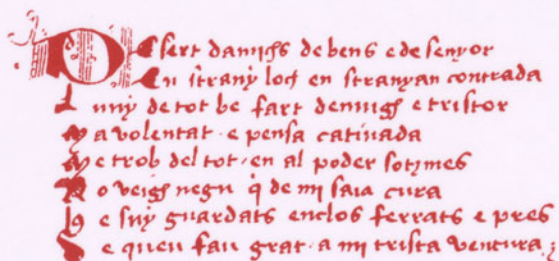 Desert damichs de bens e de senyor
En strany loch en stranyan contrada
Luny de tot be fart denuigs e tristor
Ma volentat e pensa cativada
Me trob del tot en al poder sotzmes
No veig negu q̄ de mi saia cura
E suy guardats enclos ferrats e pres
De queu fau grat a mi trista ventura